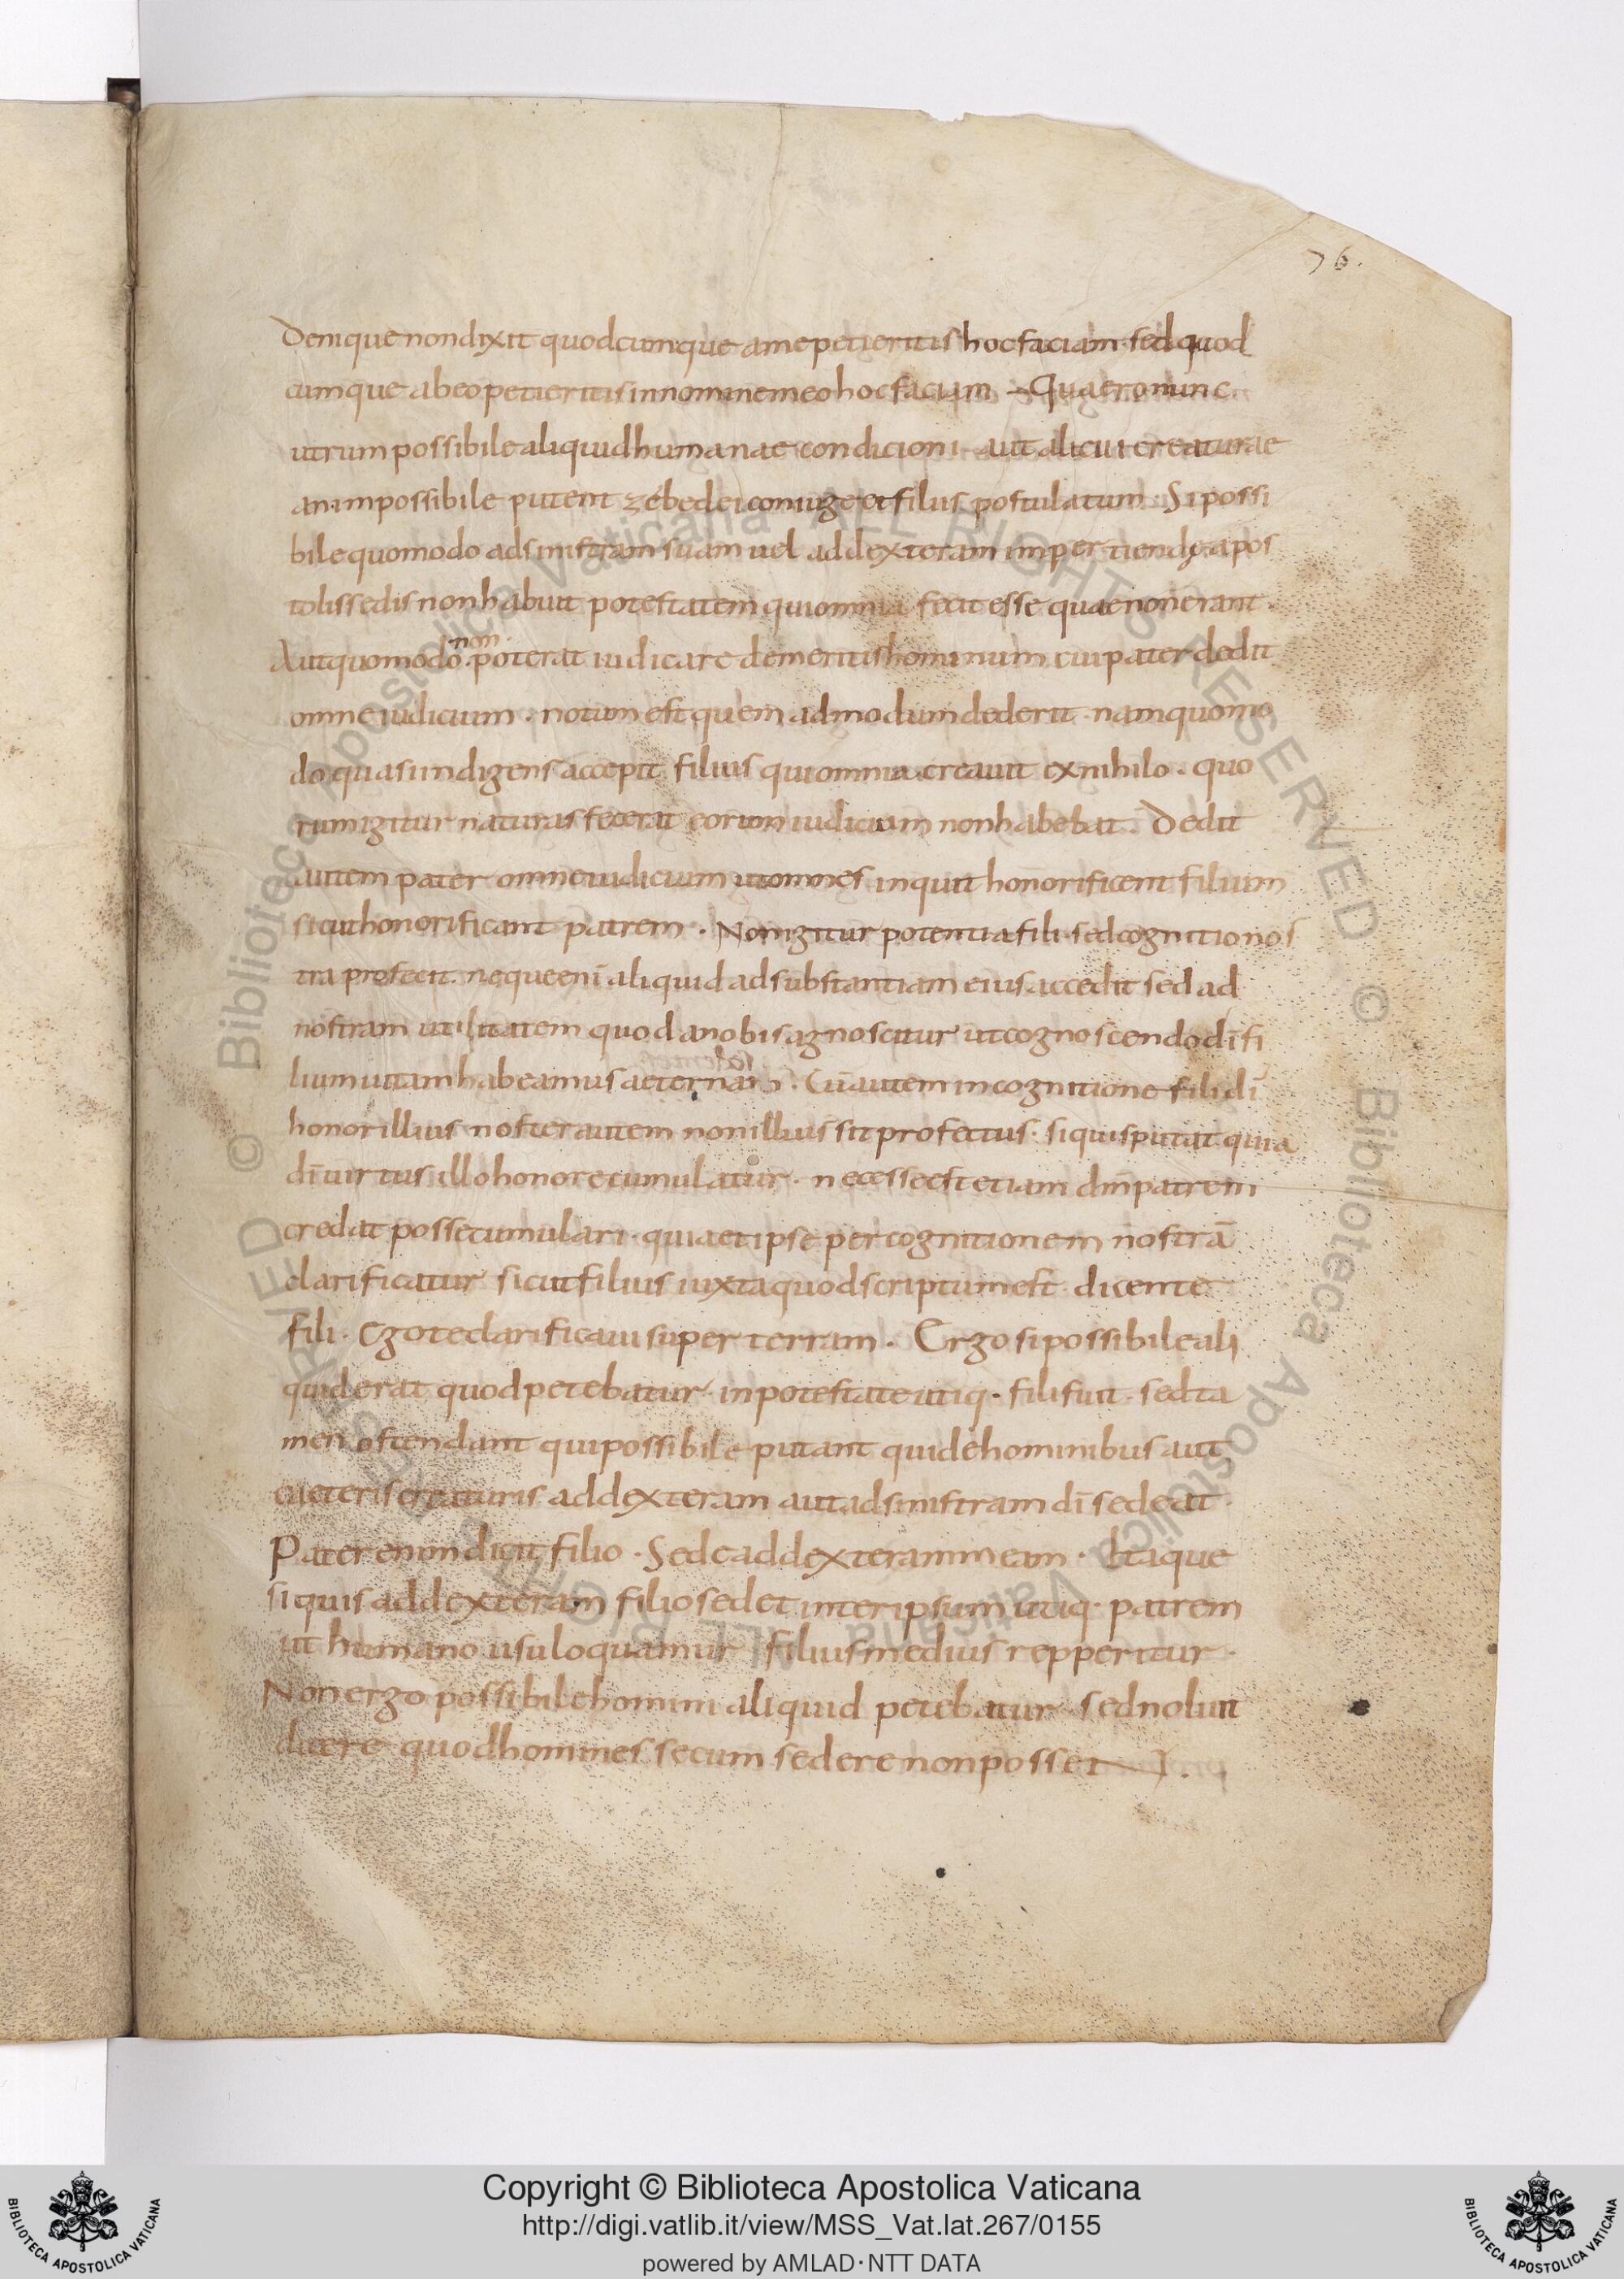 76.
Denique non dixit quodcumque a me petieritis hoc faciam · sed quod
cumque ab eo petieritis in nomine meo hoc faciam · Quaero nunc
utrum possibile aliquid humanae condicioni · aut alicui creaturae
an inpossibile putent zebedei coniuge et filiis postulatum · Si possi
bile quomodo ad sinistram suam uel ad dexteram impertiendę apos
tolis sedis non habuit potestatem qui omnia fecit esse quae non erant ·
Aut quomodo non poterat iudicare de meritis hominum cui pater dedit
omne iudicium · notum est quem admodum dederit · nam quomo
do quasi indigens accepit filius qui omnia creauit ex nihilo · quo
rum igitur naturas fecerat eorum iudicium non habebat · Dedit
autem pater omne iudicium ut omnes inquit honorificent filium
sicut honorificant patrem · Non igitur potentia fili · sed cognitio nos
tra proficit · neque enī aliquid ad substantiam eius accedit sed ad
nostram utilitatem quod a nobis agnoscitur ut cognoscendo dī fi
lium uitam habeamus aeternam · Cū autem in cognitione fili dī
honor illius noster autem non illius sit profectus · si quis putat quia
dī uirtus illo honore cumulatur · necesse est etiam dm̄ patrem
credat posse cumulari · quia et ipse per cognitionem nostrā
clarificatur sicut filius iuxta quod scriptum est · dicente
fili · Ego te clarificaui super terram · Ergo si possibile ali
quid erat quod petebatur · in potestate utiq· fili fuit · sed ta
men ostendant qui possibile putant qui de hominibus aut
caeteris creaturis ad dexteram aut ad sinistram dī sedeat ·
Pater enim dicit filio · Sede ad dexteram meam · Itaque
si quis ad dexteram filio sedet inter ipsum utiq· patrem
ut humano usu loquamur filius medius repperitur ·
Non ergo possibile homini aliquid petebatur · sed noluit
dicere quod homines secum sedere non posset
© Biblioteca Apostolica Vaticana ALL RIGHTS RESERVED © Biblioteca Apostolica Vaticana ALL RIGHTS RESERVED
BIBLIOTECA APOSTOLICA VATICANA
Copyright © Biblioteca Apostolica Vaticana
http://digi.vatlib.it/view/MSS_Vat.lat.267/0155
powered by AMLAD·NTT DATA
BIBLIOTECA APOSTOLICA VATICANA